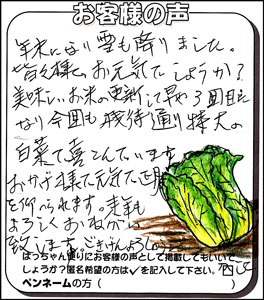 お客様の声
年末になり雪も降りました。
皆々様、お元気でしょうか?
美味しいお米の更新して早や3回目に
なり今回も期待通り特大の
白菜で喜こんでいます
おかげ様で元気で正月
を迎られます。来年も
よろしくおねがい
致します。ごきげんよろしゅう
ぱっちゃん便りにお客様の声として掲載してもいいで
しょうか?匿名希望の方は✓を記入して下さい。
ペンネームの方( )